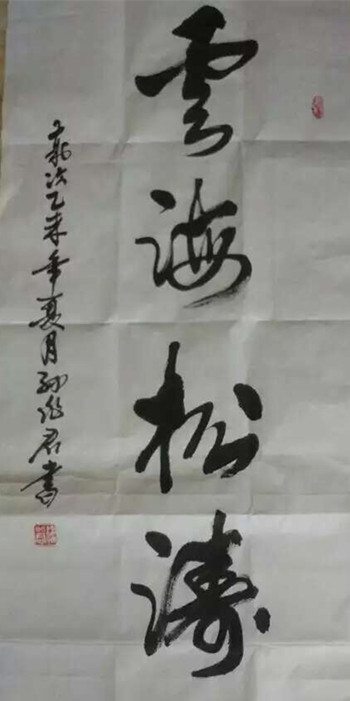 雲海松濤
歲次乙未年夏月孙作君書